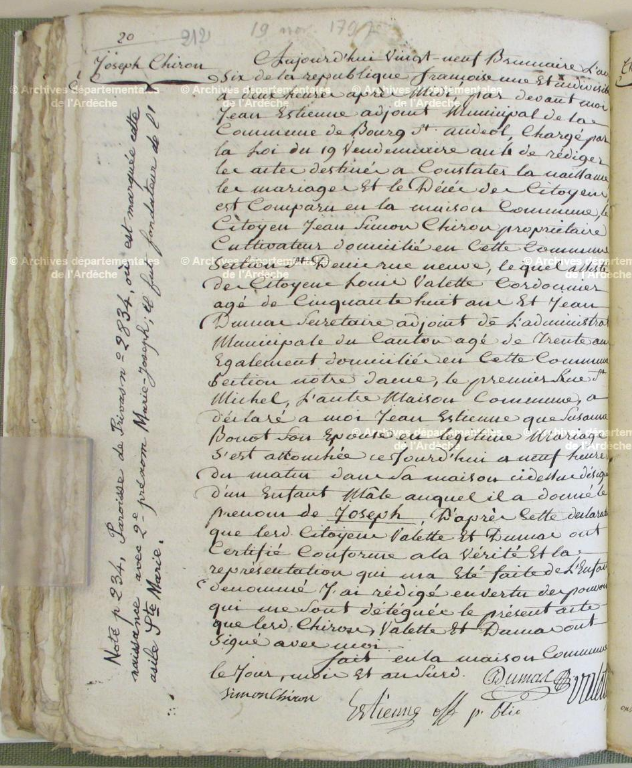 20
312
19 nov. 1797
Joseph Chiron
Aujourd'hui vingt-neuf Brumaire L'an
six de la republique françoise une Et indivisible
a onze heures après Midi par devant moi
Jean Estienne adjoint Municipal de la
Commune de Bourg St. andeol, Chargé par
la Loi du 19 Vendemiaire an 4 de rédiger
les actes destinés a Constater la naissance
le mariage Et le Décès des Citoyens
est Comparu en la maison Commune, le
Citoyen Jean Simon Chiron propriétaire
Cultivateur domicilié en Cette Commune
Section St. Denis rue neuve, le quel assisté
des Citoyens Louis Valette Cordonnier
agé de Cinquante huit ans Et Jean
Dumas Secretaire adjoint de L'administrat
Municipale du Canton agé de trente ans
Egalement domiciliés en Cette Commune
Section notre dame, le premier Rue St.
Michel, L'autre Maison Commune, a
déclaré a moi Jean Estienne que Susanne
Bonot Son Epouse en légitime Mariage
S'est accouchée ce Jourd'hui a neuf heures
du matin dans Sa maison cidessus désignée
d'un Enfant Mâle auquel il a donné le
prenom de Joseph, D'après Cette declarat
que lesd. Citoyens Valette Et Dumas ont
Certifié Conforme a la Vérité Et la
représentation qui m'a Eté faite de L'Enfant
denommé J'ai rédigé en vertu des pouvoirs
qui me sont délégués le présent acte
que lesd. Chiron, Valette Et Dumas ont
Signé avec moi
fait en la maison Commune
le Jour, mois Et an Susd.
Dumas
Simon Chiron
Estienne off p. blic
Note p 234, Paroisse de Privas n° 2834, où est marquée cette
naissance avec 2e prénom Marie-Joseph; il fut fondateur de l'
asile Ste Marie.
© Archives Départementales
de l'Ardèche
© Archives Départementales
de l'Ardèche
© Archives Départementales
de l'Ardèche
© Archives Départementales
de l'Ardèche
© Archives Départementales
de l'Ardèche
© Archives Départementales
de l'Ardèche